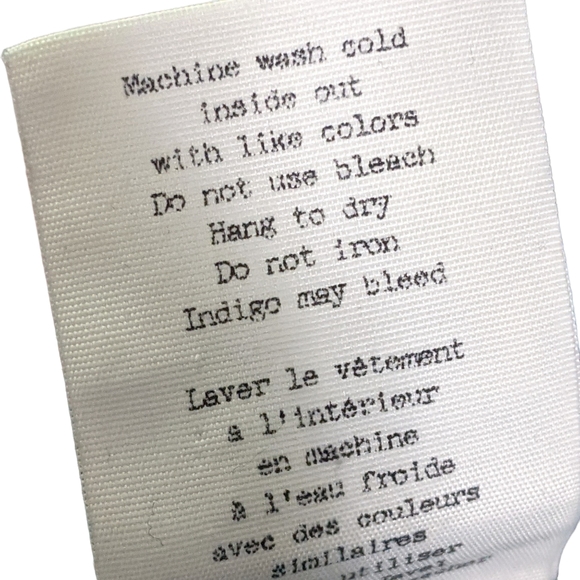 Machine wash cold
inside out
with like colors
Do not use bleach
Hang to dry
Do not iron
Indigo may bleed
Laver le vêtement
à l'intérieur
en machine
à l'eau froide
avec des couleurs
similaires
utiliser